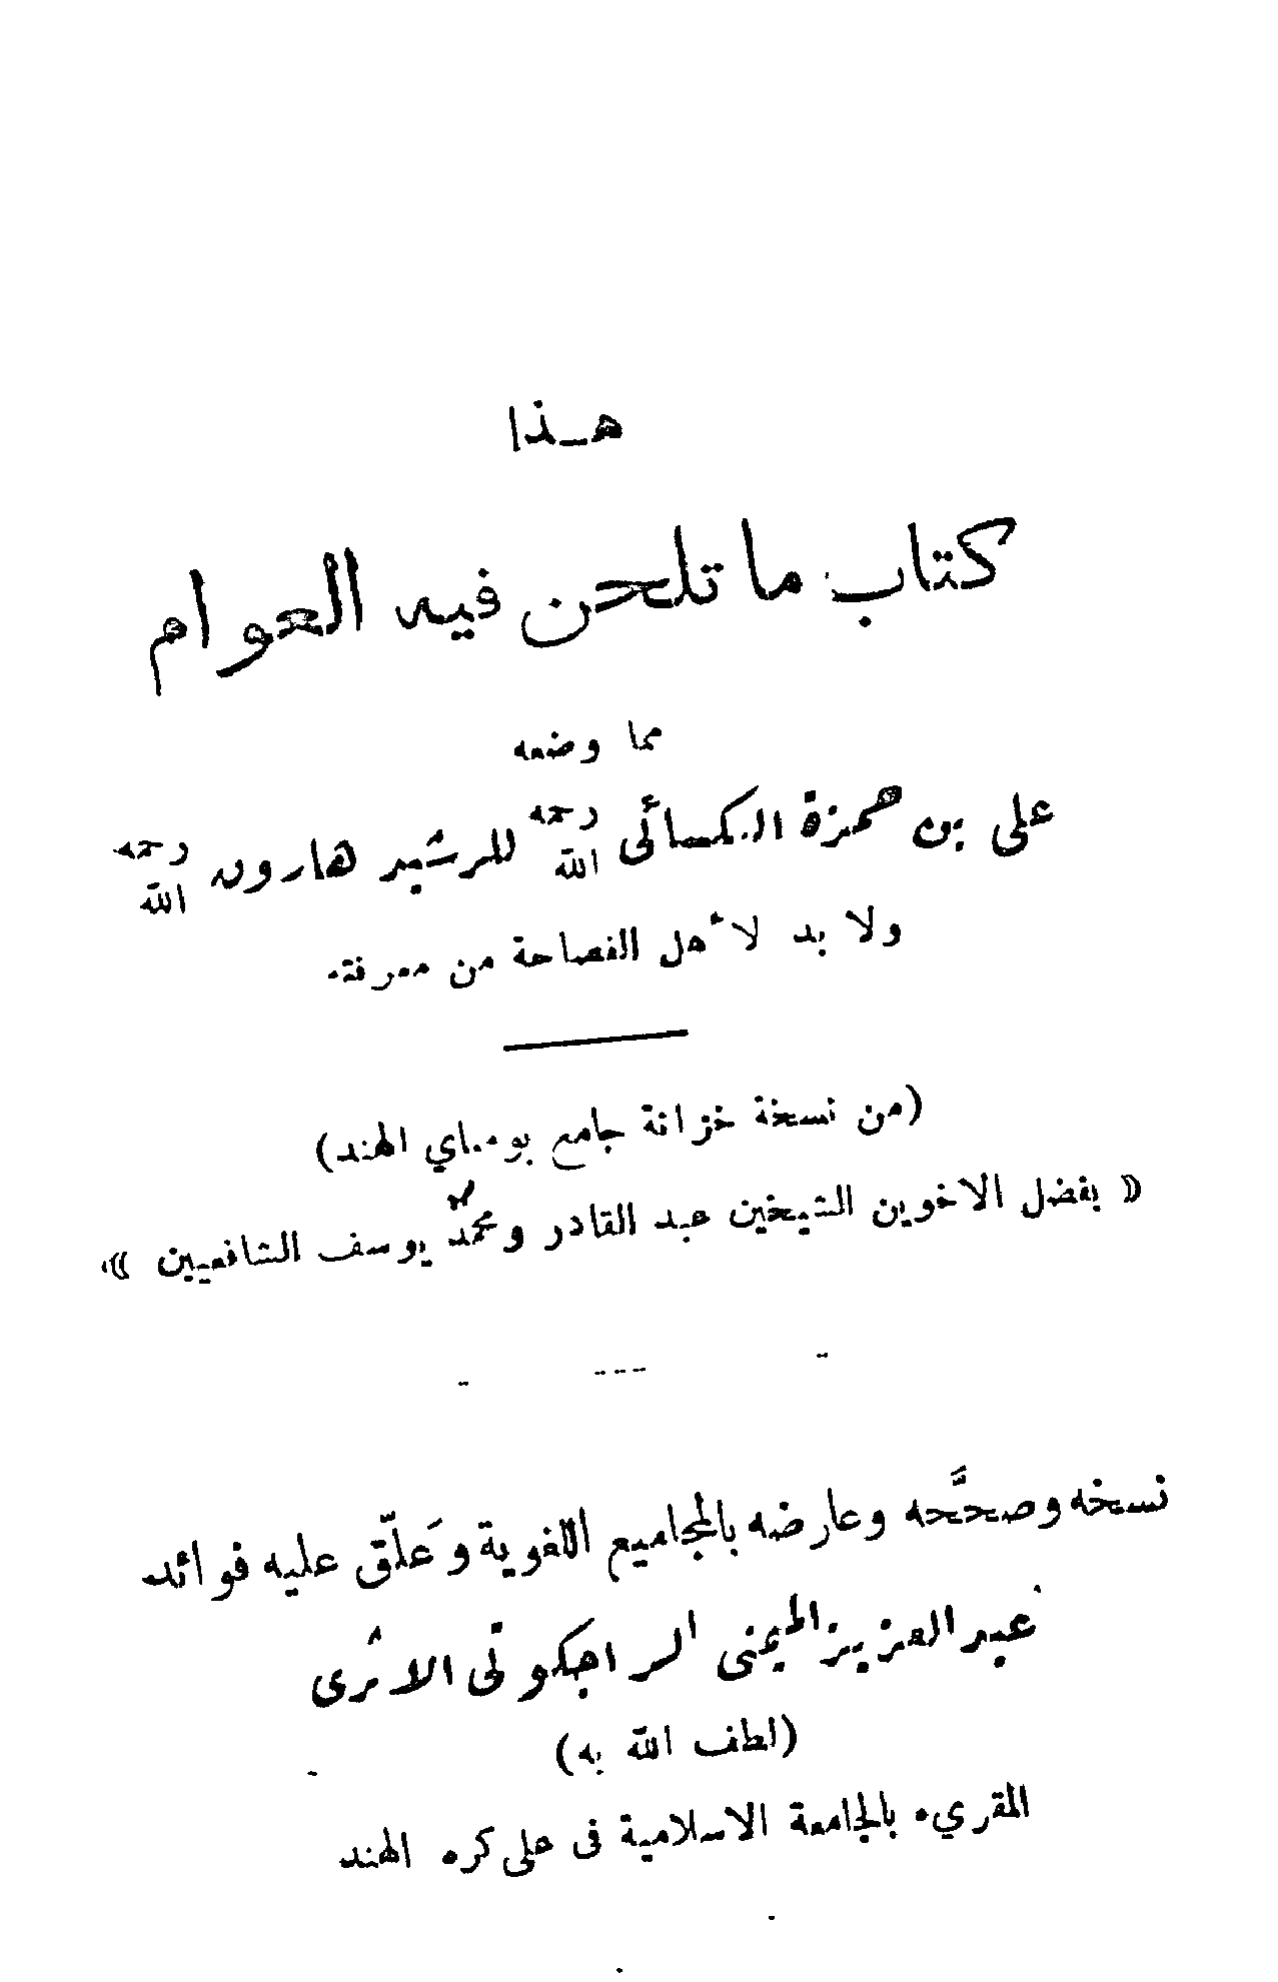 هـذا
كتاب ما تلحن فيه العوام
مما وضعه
على بن حمزة الكسائى رحمه الله للرشيد هارون رحمه الله
ولا بد لأهل الفصاحة من معرفته
(من نسخة خزانة جامع بومباي الهند)
« بفضل الاخوين الشيخين عبد القادر ومحمّد يوسف الشافعيين »
نسخه وصحَّحه وعارضه بالمجاميع اللغوية وَعلّق عليه فوائد
عبد العزيز الميمنى الراجكوتى الاثرى
(لطف الله به)
المقريء بالجامعة الاسلامية فى على كره الهند